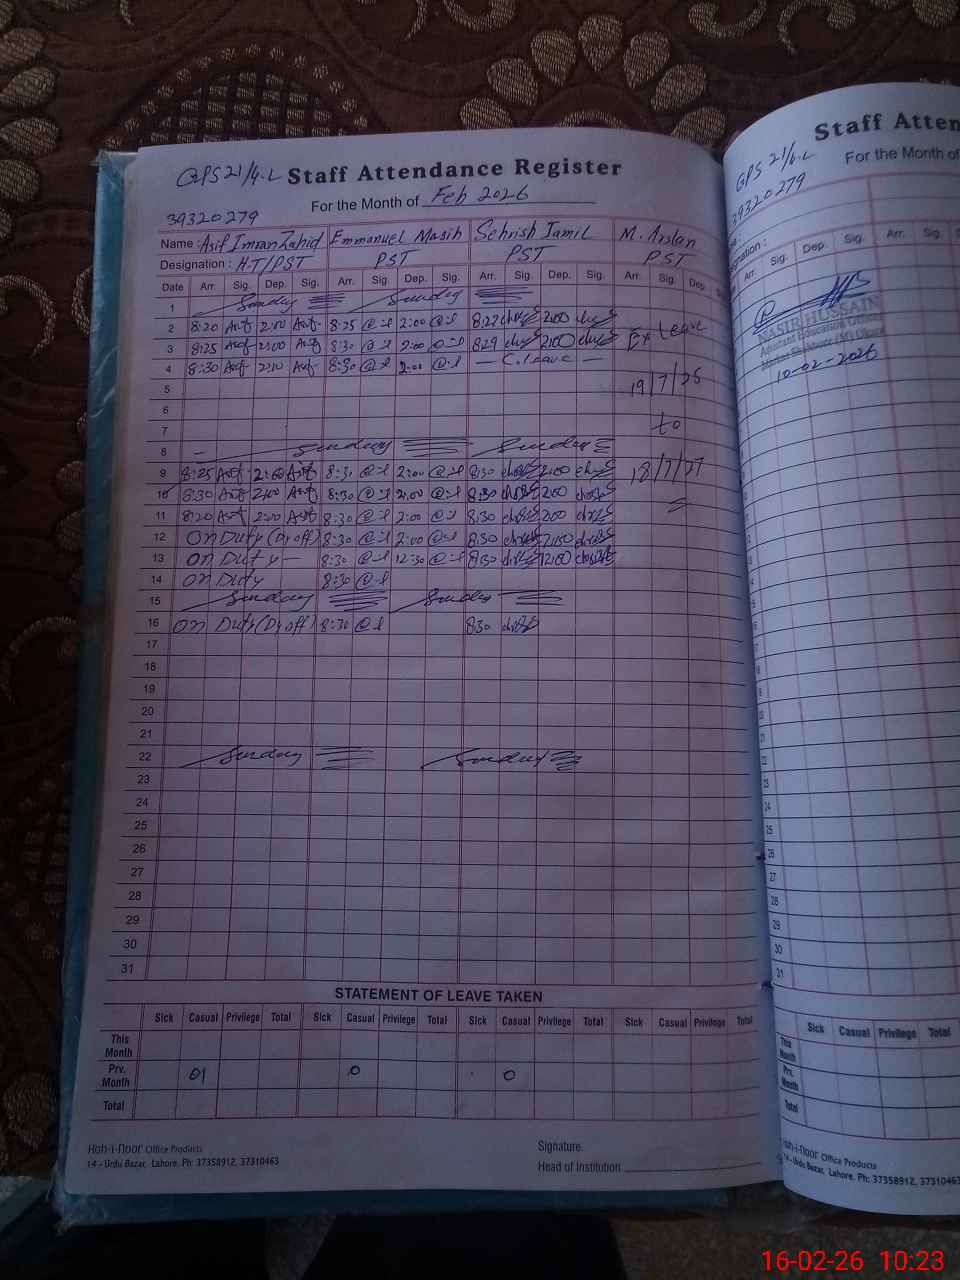 GPS 21/4-L Staff Attendance Register
For the Month of Feb 2026
39320279
Name : Asif Imran Zahid Emmanuel Masih Sehrish Jamil M. Arslan
Designation : H-T/PST PST PST PST
Date Arr. Sig. Dep. Sig. Arr. Sig. Dep. Sig. Arr. Sig. Dep. Sig. Arr. Sig. Dep.
1 Sunday Sunday
2 8:20 Asif 2:00 Asif 8:25 2:00 8:27 2:00
3 8:25 Asif 2:00 Asif 8:30 2:00 829 2:00 Ex Leave
4 8:30 Asif 2:10 Asif 8:30 2:00 - C. leave -
5 19/7/25
6
7 to
8 Sunday Sunday
9 8:25 Asif 2:00 Asif 8:30 2:00 8:30 2:00 18/7/27
10 8:30 Asif 2:00 Asif 8:30 2:00 8:30 200
11 8:20 Asif 2:10 Asif 8:30 2:00 8:30 200
12 On Duty (Dy off) 8:30 2:00 8:30 2:00
13 On Duty - 8:30 12:30 8:30 12:00
14 On Duty 8:30
15 Sunday Sunday
16 On Duty (Dy off) 8:30 8:30
17
18
19
20
21
22 Sunday Sunday
23
24
25
26
27
28
29
30
31
STATEMENT OF LEAVE TAKEN
Sick Casual Privilege Total Sick Casual Privilege Total Sick Casual Privilege Total Sick Casual Privilege Total
This Month
Prv. Month 01 0 0
Total
Koh-i-noor Office Products
14 - Urdu Bazar, Lahore. Ph: 37358912, 37310463
Signature.
Head of Institution
Staff Atten
GPS 21/4-L
For the Month of
39320279
Arr. Sig. Dep. Sig. Arr. Sig.
NASIR HUSSAIN
Assistant Education Officer
10-02-2026
25
26
27
28
29
30
31
Sick Casual Privilege Total
This Month
Prv. Month
Total
Koh-i-noor Office Products
14 - Urdu Bazar, Lahore. Ph: 37358912, 37310463
16-02-26 10:23